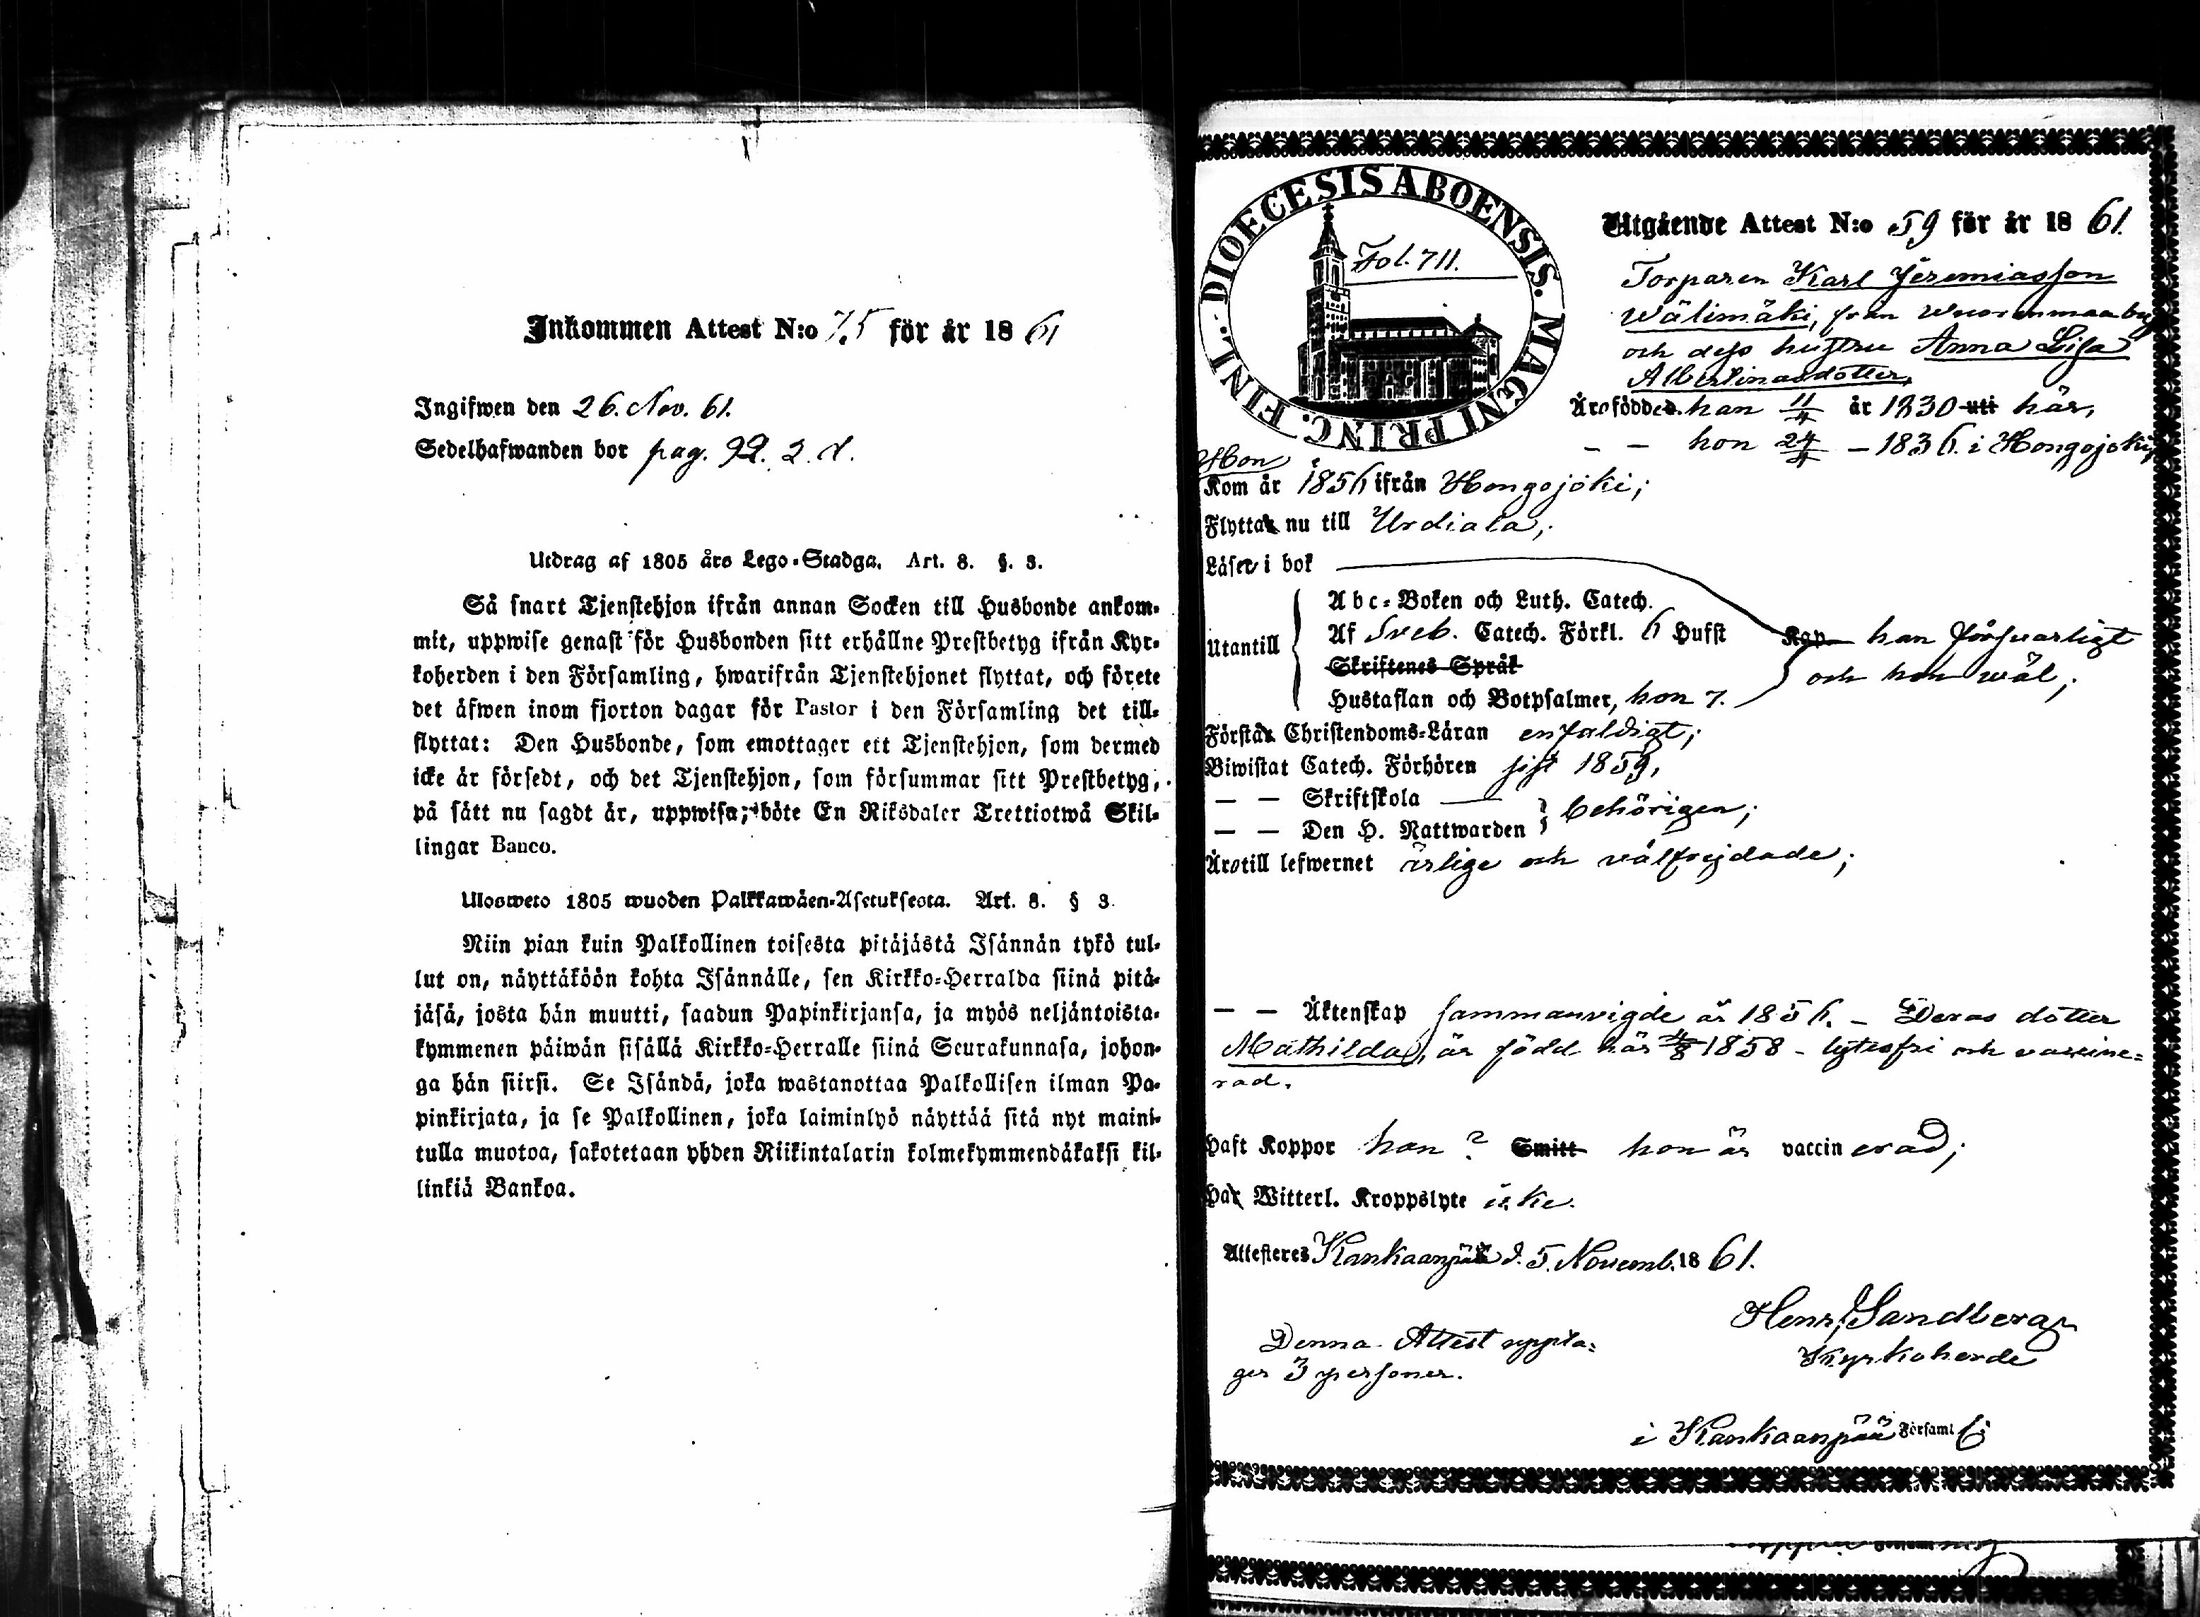 Inkommen Attest N:o 75 för år 1861
Ingifwen den 26. Nov. 61.
Sedelhafwanden bor pag. 92. 2. d.
Utdrag af 1805 års Lego-Stadga. Art. 8. §. 3.
Så snart Tjenstehjon ifrån annan Socken till Husbonde ankom-
mit, uppwise genast för Husbonden sitt erhållne Prestbetyg ifrån Kyr-
koherden i den Församling, hwarifrån Tjenstehjonet flyttat, och förete
det äfwen inom fjorton dagar för Pastor i den Församling det till-
flyttat: Den Husbonde, som emottager ett Tjenstehjon, som dermed
icke är försedt, och det Tjenstehjon, som försummar sitt Prestbetyg,
på sätt nu sagdt är, uppwisa; böte En Riksdaler Trettiotwå Skil-
lingar Banco.
Ulosweto 1805 wuoden Palkkawäen-Asetuksesta. Art. 8. § 3.
Niin pian kuin Palkollinen toisesta pitäjästä Isännän tykö tul-
lut on, näyttäköön kohta Isännälle, sen Kirkko-Herralda siinä pitä-
jäsä, josta hän muutti, saadun Papinkirjansa, ja myös neljäntoista-
kymmenen päiwän sisällä Kirkko-Herralle siinä Seurakunnasa, johon-
ga hän siirsi. Se Isändä, joka wastanottaa Palkollisen ilman Pa-
pinkirjata, ja se Palkollinen, joka laiminlyö näyttää sitä nyt maini-
tulla muotoa, sakotetaan yhden Riikintalarin kolmekymmendäkaksi kil-
linkiä Bankoa.
DIOECESIS ABOENSIS. MAGNI PRINC. FINL.
Fol. 711.
Utgående Attest N:o 59 för år 1861.
Torparen Karl Jeremiasson
Wälimäki, från Wuorenmaa by
och dess hustru Anna Lisa
Albertinasdotter,
Äro födde d. han 11/4 år 1830 uti här,
— — hon 24/ — 1836. i Hongojoki,
Hon
Kom år 1856 ifrån Hongojoki;
Flytta nu till Urdiala;
Läser i bok
Abc-Boken och Luth. Catech.
Utantill Af Sveb. Catech. Förkl. 6 Hufst Kap han försvarligt
Skriftenes Språk och hon wäl;
Hustaflan och Botpsalmer, hon 7.
Förstå Christendoms-Läran enfaldigt;
Biwistat Catech. Förhören sist 1859,
— — Skriftskola — behörigen;
— — Den H. Nattwarden
Äro till lefwernet ärlige och välfrejdade;
— — Äktenskap sammanvigde år 1856. — Deras dotter
Mathilda, är född här 1858 - lytesfri och vaccine=
rad.
Haft Koppor han? Smitt hon är vaccinerad;
Ha Witterl. Kroppslyte icke.
Attesteres Kankaanpää d. 5. Novemb. 1861.
Henr. Sandberg
Kyrkoherde
Denna Attest uppta=
ger 3 personer.
i Kankaanpää Församl